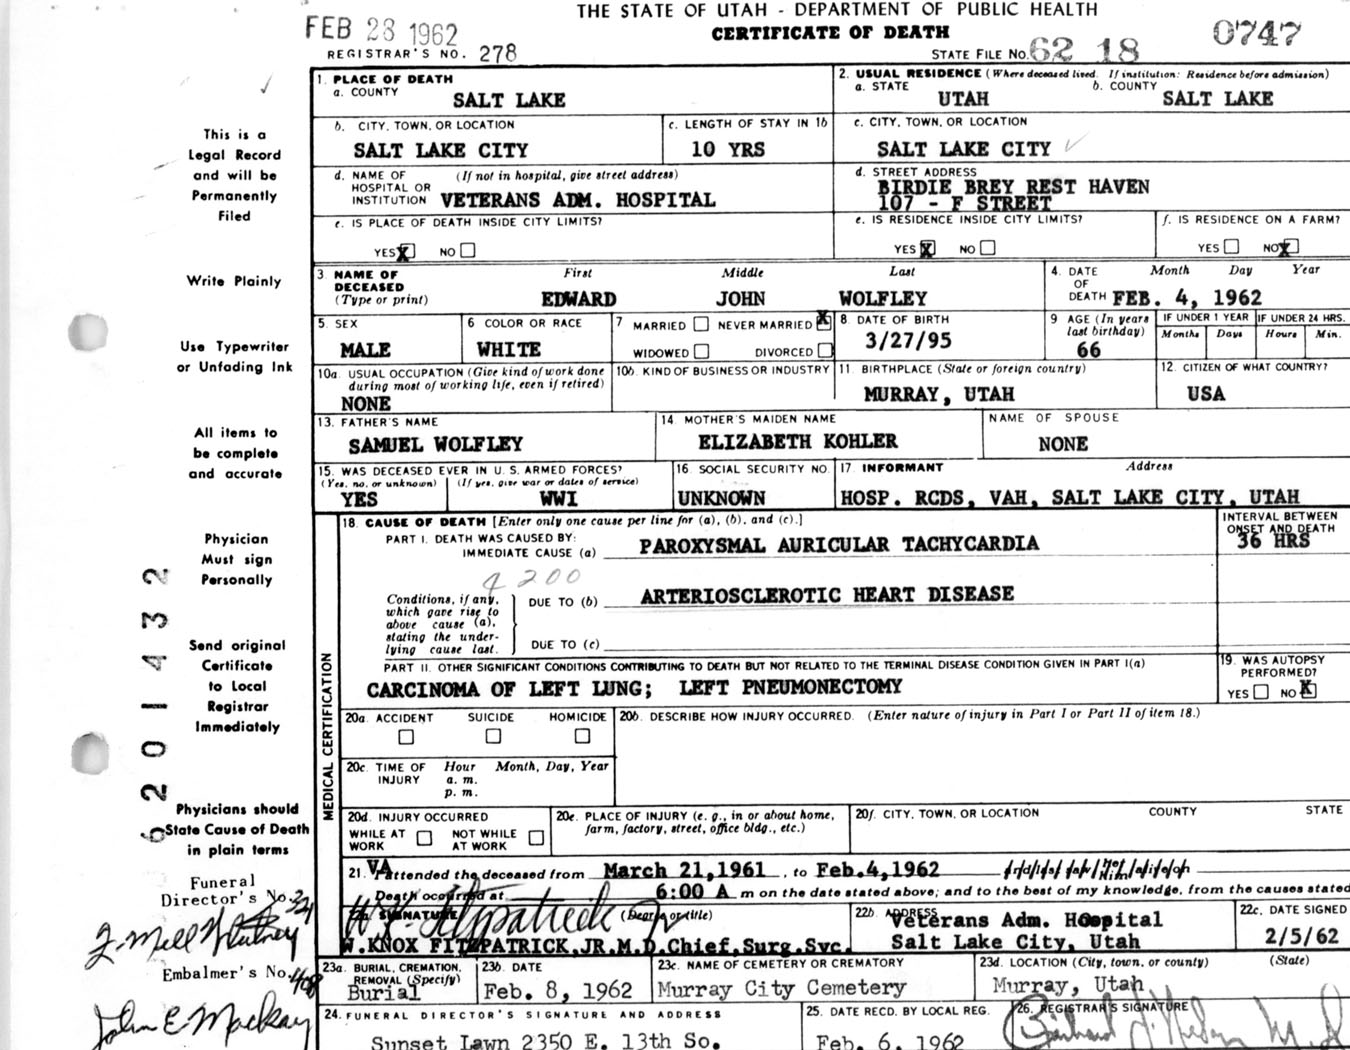 THE STATE OF UTAH - DEPARTMENT OF PUBLIC HEALTH
FEB 28 1962 CERTIFICATE OF DEATH 0747
REGISTRAR'S NO. 278 STATE FILE NO. 62 18
1. PLACE OF DEATH
a. COUNTY
SALT LAKE
2. USUAL RESIDENCE (Where deceased lived. If institution: Residence before admission)
a. STATE b. COUNTY
UTAH SALT LAKE
b. CITY, TOWN, OR LOCATION
SALT LAKE CITY
c. LENGTH OF STAY IN 1b
10 YRS
c. CITY, TOWN, OR LOCATION
SALT LAKE CITY
d. NAME OF (If not in hospital, give street address)
HOSPITAL OR
INSTITUTION VETERANS ADM. HOSPITAL
d. STREET ADDRESS
BIRDIE BREY REST HAVEN
107 - F STREET
e. IS PLACE OF DEATH INSIDE CITY LIMITS?
YES X NO
e. IS RESIDENCE INSIDE CITY LIMITS?
YES X NO
f. IS RESIDENCE ON A FARM?
YES NO X
3. NAME OF First Middle Last
DECEASED
(Type or print) EDWARD JOHN WOLFLEY
4. DATE Month Day Year
OF
DEATH FEB. 4, 1962
5. SEX
MALE
6 COLOR OR RACE
WHITE
7 MARRIED NEVER MARRIED X
WIDOWED DIVORCED
8. DATE OF BIRTH
3/27/95
9. AGE (In years
last birthday)
66
IF UNDER 1 YEAR IF UNDER 24 HRS.
Months Days Hours Min.
10a. USUAL OCCUPATION (Give kind of work done
during most of working life, even if retired)
NONE
10b. KIND OF BUSINESS OR INDUSTRY
11. BIRTHPLACE (State or foreign country)
MURRAY, UTAH
12. CITIZEN OF WHAT COUNTRY?
USA
13. FATHER'S NAME
SAMUEL WOLFLEY
14. MOTHER'S MAIDEN NAME
ELIZABETH KOHLER
NAME OF SPOUSE
NONE
15. WAS DECEASED EVER IN U.S. ARMED FORCES?
(Yes, no, or unknown) (If yes, give war or dates of service)
YES WWI
16. SOCIAL SECURITY NO.
UNKNOWN
17. INFORMANT Address
HOSP. RCDS, VAH, SALT LAKE CITY, UTAH
MEDICAL CERTIFICATION
18. CAUSE OF DEATH [Enter only one cause per line for (a), (b), and (c).]
INTERVAL BETWEEN
ONSET AND DEATH
PART I. DEATH WAS CAUSED BY:
IMMEDIATE CAUSE (a) PAROXYSMAL AURICULAR TACHYCARDIA 36 HRS
4200
Conditions, if any,
which gave rise to
above cause (a),
stating the under-
lying cause last.
DUE TO (b) ARTERIOSCLEROTIC HEART DISEASE
DUE TO (c)
PART II. OTHER SIGNIFICANT CONDITIONS CONTRIBUTING TO DEATH BUT NOT RELATED TO THE TERMINAL DISEASE CONDITION GIVEN IN PART I(a)
CARCINOMA OF LEFT LUNG; LEFT PNEUMONECTOMY
19. WAS AUTOPSY
PERFORMED?
YES NO X
20a. ACCIDENT SUICIDE HOMICIDE
20b. DESCRIBE HOW INJURY OCCURRED. (Enter nature of injury in Part I or Part II of item 18.)
20c. TIME OF Hour Month, Day, Year
INJURY a. m.
p. m.
20d. INJURY OCCURRED
WHILE AT NOT WHILE
WORK AT WORK
20e. PLACE OF INJURY (e. g., in or about home,
farm, factory, street, office bldg., etc.)
20f. CITY, TOWN, OR LOCATION COUNTY STATE
21. VA attended the deceased from March 21,1961, to Feb.4,1962
Death occurred at 6:00 A m on the date stated above; and to the best of my knowledge, from the causes stated
22a. SIGNATURE (Degree or title)
W.K. Fitzpatrick Jr
W.KNOX FITZPATRICK,JR.M.D.Chief,Surg.Svc.
22b. ADDRESS
Veterans Adm. Hospital
Salt Lake City, Utah
22c. DATE SIGNED
2/5/62
23a. BURIAL, CREMATION,
REMOVAL (Specify)
Burial
23b. DATE
Feb. 8, 1962
23c. NAME OF CEMETERY OR CREMATORY
Murray City Cemetery
23d. LOCATION (City, town, or county) (State)
Murray, Utah
24. FUNERAL DIRECTOR'S SIGNATURE AND ADDRESS
Sunset Lawn 2350 E. 13th So.
25. DATE RECD. BY LOCAL REG.
Feb. 6, 1962
26. REGISTRAR'S SIGNATURE
This is a
Legal Record
and will be
Permanently
Filed
Write Plainly
Use Typewriter
or Unfading Ink
All items to
be complete
and accurate
Physician
Must sign
Personally
Send original
Certificate
to Local
Registrar
Immediately
Physicians should
State Cause of Death
in plain terms
6201432
Funeral
Director's No. 321
Embalmer's No. 408
John E. Mackay